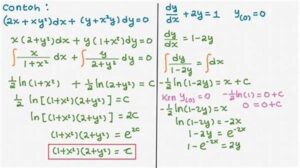 Contoh:
(2x + xy²)dx + (y + x²y)dy = 0
x(2+y²)dx + y(1+x²)dy = 0
∫ x/(1+x²) dx + ∫ y/(2+y²) dy = ∫0
½ ln(1+x²) + ½ ln(2+y²) = C
½ ln[(1+x²)(2+y²)] = C
ln[(1+x²)(2+y²)] = 2C
(1+x²)(2+y²) = e^2C
(1+x²)(2+y²) = C
dy/dx + 2y = 1 y(0) = 0
dy/dx = 1-2y
∫ dy/(1-2y) = ∫ dx
-½ ln(1-2y) = x + C
Krn y(0) = 0 -½ ln(1) = 0 + C
-½ ln(1-2y) = x 0 = 0 + C
ln(1-2y) = -2x
1-2y = e^-2x
1-e^-2x = 2y